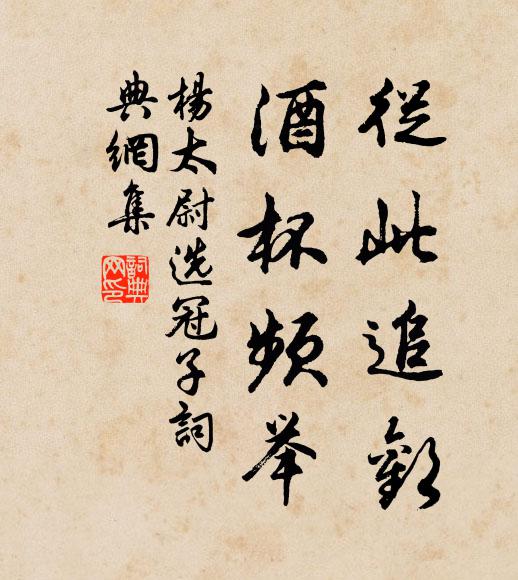 從此追歡
酒杯頻舉
楊太尉選冠子詞
典網集
詞典網印